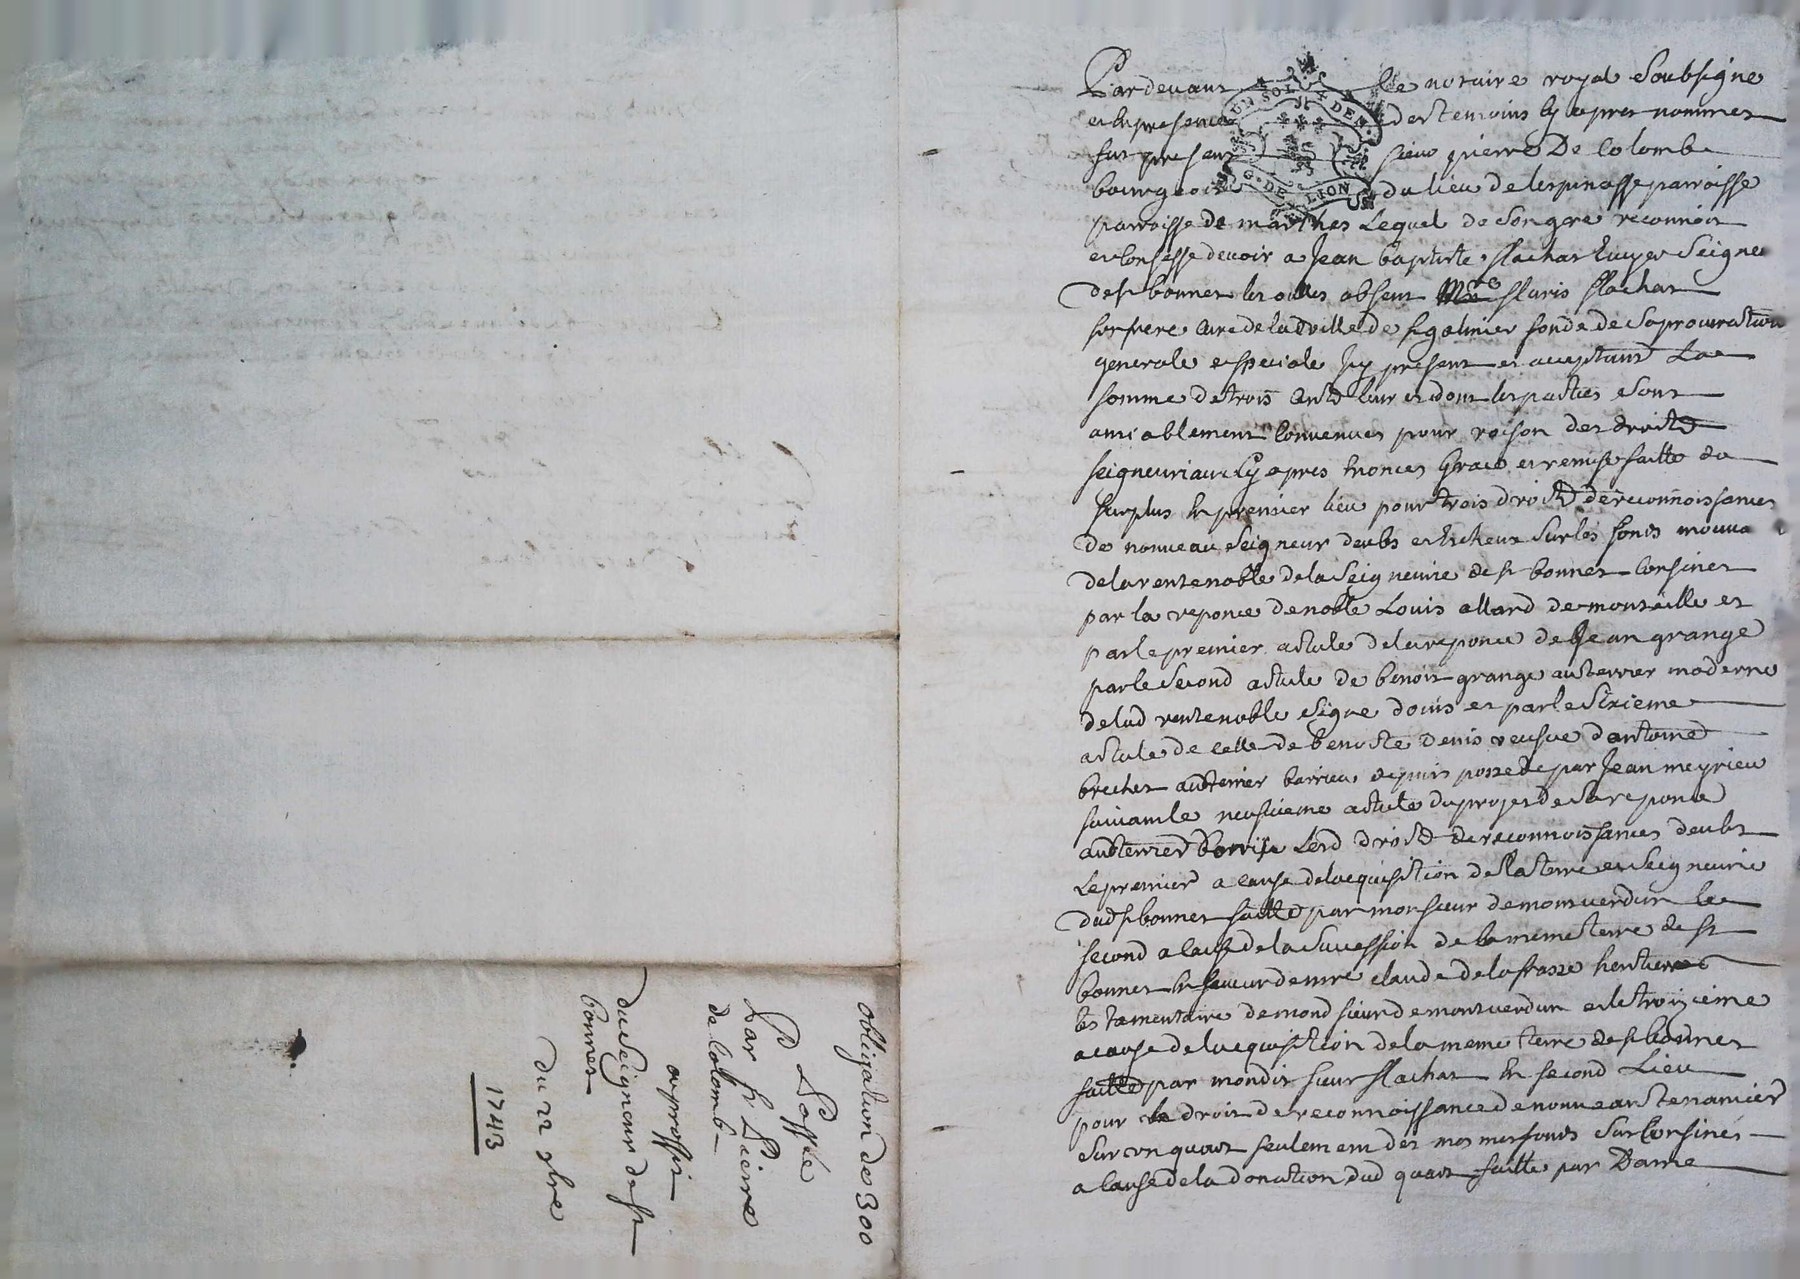 obligation de 300
passée
par sr pierre
de colomb
au proffit
du seigneur de st
bonnet
du 22 9bre
1743
UN SOL 4 DEN.
G. DE LION
Pardevant le notaire royal soubsigne
et en presence des temoins cy apres nommes
fut present sieur pierre De Colomb
bourgeois du lieu de lespinasse parroisse
parroisse de marlhes Lequel de son gre reconnoit
et confesse devoir a Jean baptiste flachat Escuyer Seigneur
de st bonnet les oulles absent Mre fleuris flachat
son frere cure de lad ville de st galmier fondé de sa procuration
generale et speciale icy present et acceptant La
somme de trois cents livres dont les parties sont
amiablement convenues pour raison des droits
seigneuriaux cy apres enoncés Grace et remise faitte du
surplus en premier lieu pour trois droits de reconnoissances
de nouveau seigneur deubs et eschus sur les fonds mouva
de la rente noble de la Seigneurie de st bonnet confinés
par la reponce de noble Louis allard de monteille et
par le premier article de la reponce de Jean grange
par le second article de benoit grange au terrier moderne
de lad rente noble signé et par le sixieme
article de celle de benoite denis veufve d'antoine
brechet aud terrier barrieu depuis possede par Jean meyrieu
suivant le neufvieme article du projet de sa reponce
aud terrier Lesd droits de reconnoissances deubs
Le premier a cause de lacquisition de la terre et seigneurie
dud st bonnet faitte par monsieur de montverdun le
second a cause de la succession de la meme terre de st
bonnet en faveur de mre claude de la frasse heritier
testamentaire de mond sieur de montverdun et le troisieme
a cause de lacquisition de la meme terre de st bonnet
faitte par mondit sieur flachat En second Lieu
pour le droit de reconnoissance de nouveau tenancier
sur un quart seulement des mesmes fonds sus confinés
a cause de la donation dud quart faitte par Dame